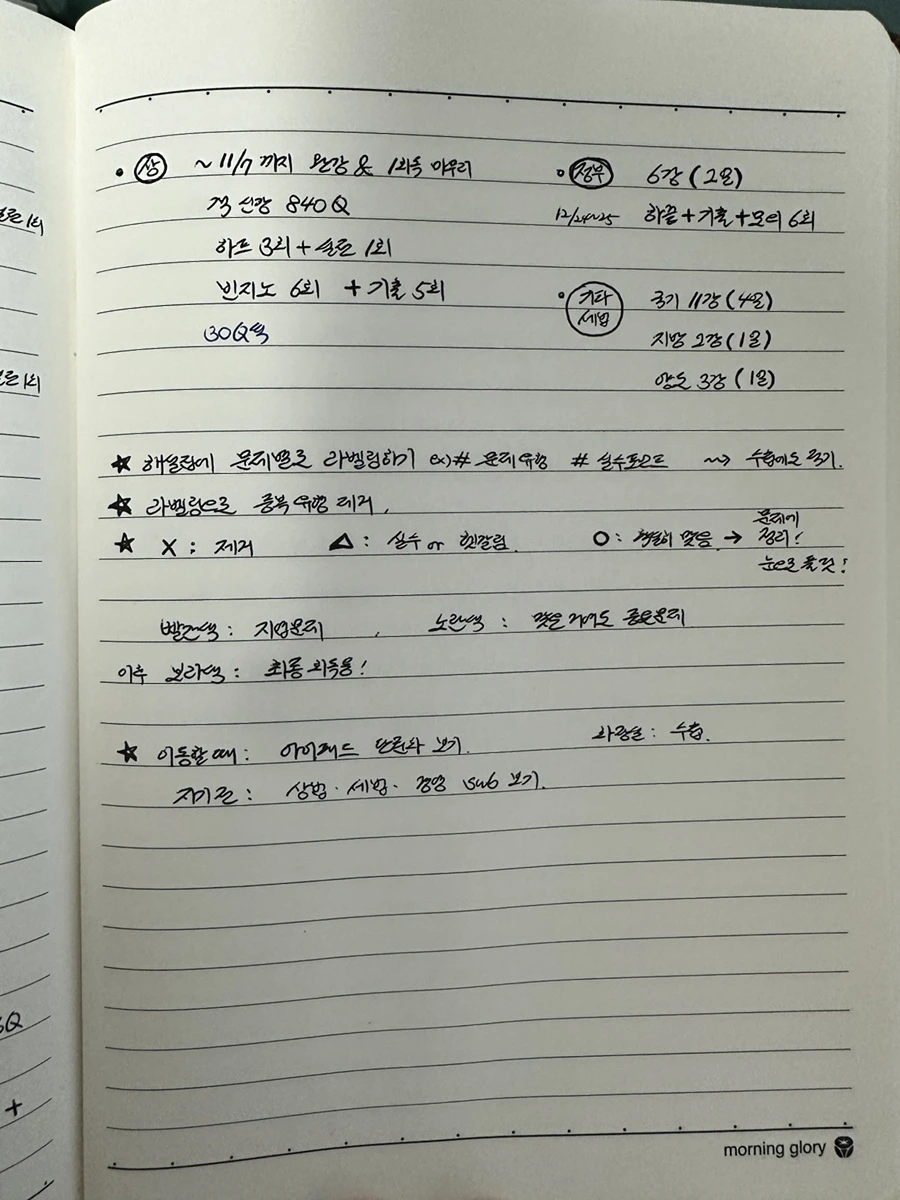 • 상 ~11/7까지 완강 & 1회독 마무리
객 신강 840Q
하프 3회 + 실론 1회
빈지노 6회 + 기출 5회
30Q씩
• 정부 6강 (2일)
12/24~25 하끝+기출+모의 6회
• 기타 세법 국기 11강 (4일)
지방 2강 (1일)
양도 3강 (1일)
★ 해설집에 문제별로 라벨링하기 ex) # 문제유형 # 실수포인트 ~> 수첩에도 적기.
★ 라벨링으로 중복 유형 제거.
★ X : 제거 △ : 실수 or 헷갈림. O : 확실히 맞음 → 문제에 정리!
눈으로 풀것!
빨간색 : 지엽문제, 노란색 : 맞은거여도 좋은문제
이후 보라색 : 최종 회독용!
★ 이동할 때 : 아이패드 단권화 보기. 화장실 : 수첩.
자기전 : 상법·세법·경영 sub 보기.
실론 1회
실론 1회
Q
+
morning glory